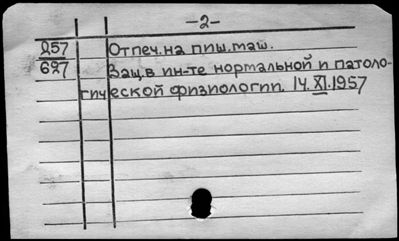 -2-
257 Отпеч. на пиш. маш.
627 Защ. в ин-те нормальной и патоло-
гической физиологии. 14.XI.1957